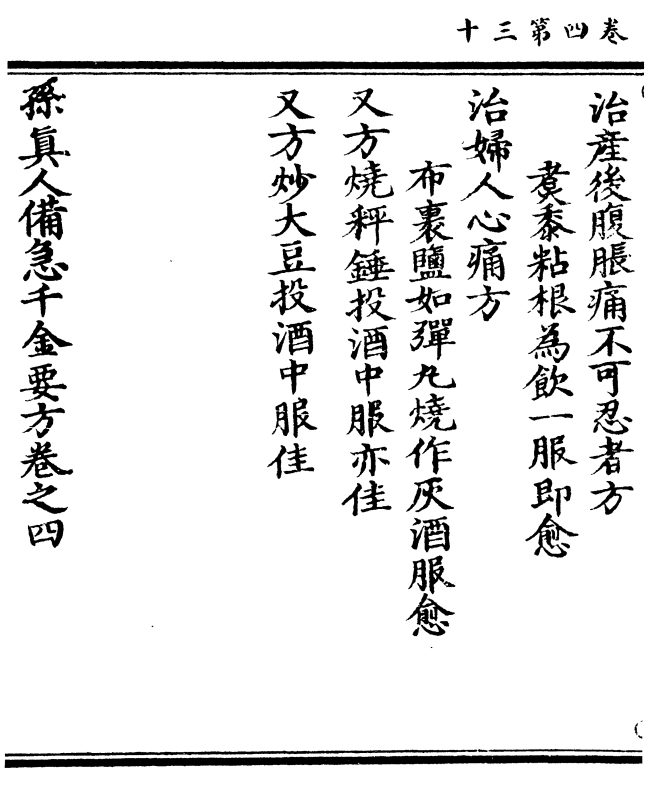 卷四第三十
治産後腹脹痛不可忍者方
煮黍粘根為飲一服即愈
治婦人心痛方
布裹鹽如彈丸燒作灰酒服愈
又方燒秤錘投酒中服亦佳
又方炒大豆投酒中服佳
孫真人備急千金要方卷之四